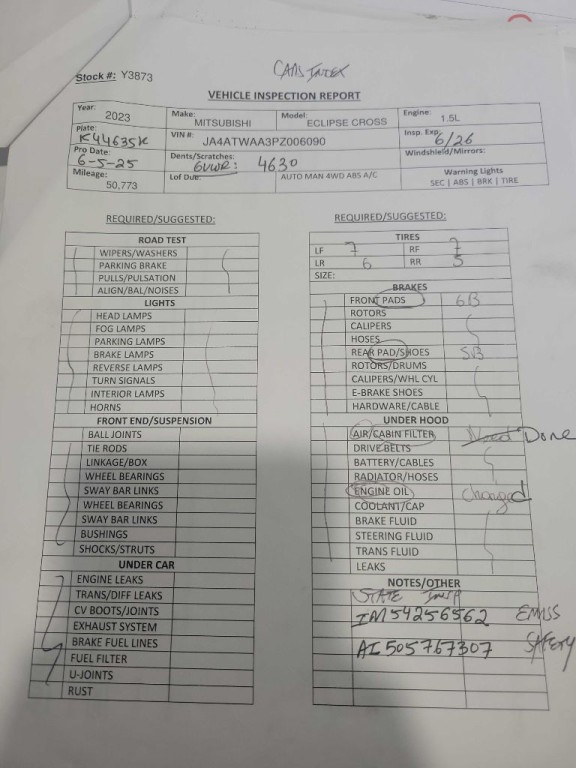 Stock #: Y3873
VEHICLE INSPECTION REPORT
Year: 2023 Make: MITSUBISHI Model: ECLIPSE CROSS Engine: 1.5L
Plate: K44635K VIN #: JA4ATWAA3PZ006090 Insp. Exp. 6/26
Pro Date: 6-5-25 Dents/Scratches: GVWR: 4630 Windshield/Mirrors:
Mileage: 50,773 Lof Due: AUTO MAN 4WD ABS A/C Warning Lights
SEC | ABS | BRK | TIRE
REQUIRED/SUGGESTED:
ROAD TEST
WIPERS/WASHERS
PARKING BRAKE
PULLS/PULSATION
ALIGN/BAL/NOISES
LIGHTS
HEAD LAMPS
FOG LAMPS
PARKING LAMPS
BRAKE LAMPS
REVERSE LAMPS
TURN SIGNALS
INTERIOR LAMPS
HORNS
FRONT END/SUSPENSION
BALL JOINTS
TIE RODS
LINKAGE/BOX
WHEEL BEARINGS
SWAY BAR LINKS
WHEEL BEARINGS
SWAY BAR LINKS
BUSHINGS
SHOCKS/STRUTS
UNDER CAR
ENGINE LEAKS
TRANS/DIFF LEAKS
CV BOOTS/JOINTS
EXHAUST SYSTEM
BRAKE FUEL LINES
FUEL FILTER
U-JOINTS
RUST
REQUIRED/SUGGESTED:
TIRES
LF 7 RF 7
LR 6 RR 5
SIZE:
BRAKES
FRONT PADS 6B
ROTORS
CALIPERS
HOSES
REAR PAD/SHOES 5B
ROTORS/DRUMS
CALIPERS/WHL CYL
E-BRAKE SHOES
HARDWARE/CABLE
UNDER HOOD
AIR/CABIN FILTER Need Done
DRIVE BELTS
BATTERY/CABLES
RADIATOR/HOSES
ENGINE OIL Changed
COOLANT/CAP
BRAKE FLUID
STEERING FLUID
TRANS FLUID
LEAKS
NOTES/OTHER
STATE INSP
IM54256562 EMISS
AI505767307 SAFETY